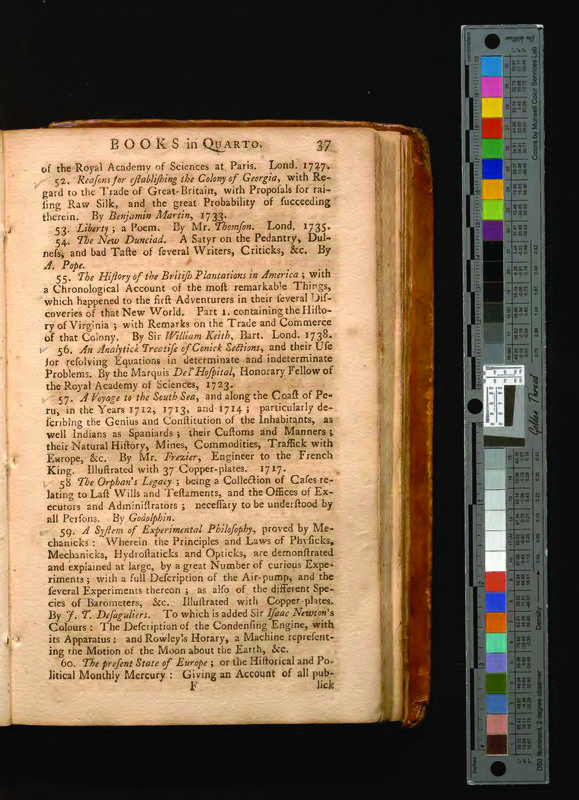 BOOKS in QUARTO. 37
of the Royal Academy of Sciences at Paris. Lond. 1727.
52. Reaſons for eſtabliſhing the Colony of Georgia, with Re-
gard to the Trade of Great-Britain, with Propoſals for rai-
ſing Raw Silk, and the great Probability of ſucceeding
therein. By Benjamin Martin, 1733.
53. Liberty; a Poem. By Mr. Thomſon. Lond. 1735.
54. The New Dunciad. A Satyr on the Pedantry, Dul-
neſs, and bad Taſte of ſeveral Writers, Criticks, &c. By
A. Pope.
55. The Hiſtory of the Britiſh Plantations in America; with
a Chronological Account of the moſt remarkable Things,
which happened to the firſt Adventurers in their ſeveral Diſ-
coveries of that New World. Part 1. containing the Hiſto-
ry of Virginia; with Remarks on the Trade and Commerce
of that Colony. By Sir William Keith, Bart. Lond. 1738.
56. An Analytick Treatiſe of Conick Sections, and their Uſe
for reſolving Equations in determinate and indeterminate
Problems. By the Marquis Del' Hoſpital, Honorary Fellow of
the Royal Academy of Sciences, 1723.
57. A Voyage to the South Sea, and along the Coaſt of Pe-
ru, in the Years 1712, 1713, and 1714; particularly de-
ſcribing the Genius and Conſtitution of the Inhabitants, as
well Indians as Spaniards; their Cuſtoms and Manners;
their Natural Hiſtory, Mines, Commodities, Traffick with
Europe, &c. By Mr. Frezier, Engineer to the French
King. Illuſtrated with 37 Copper-plates. 1717.
58 The Orphan's Legacy; being a Collection of Caſes re-
lating to Laſt Wills and Teſtaments, and the Offices of Ex-
ecutors and Adminiſtrators; neceſſary to be underſtood by
all Perſons. By Godolphin.
59. A Syſtem of Experimental Philoſophy, proved by Me-
chanicks: Wherein the Principles and Laws of Phyſicks,
Mechanicks, Hydroſtaticks and Opticks, are demonſtrated
and explained at large, by a great Number of curious Expe-
riments; with a full Deſcription of the Air-pump, and the
ſeveral Experiments thereon; as alſo of the different Spe-
cies of Barometers, &c. Illuſtrated with Copper-plates.
By J. T. Deſaguliers. To which is added Sir Iſaac Newton's
Colours: The Deſcription of the Condenſing Engine, with
its Apparatus; and Rowley's Horary, a Machine repreſent-
ing the Motion of the Moon about the Earth, &c.
60. The preſent State of Europe; or the Hiſtorical and Po-
litical Monthly Mercury: Giving an Account of all pub-
F lick
Colors by Munsell Color Services Lab
Golden Thread
Density
D50 Illuminant, 2 degree observer